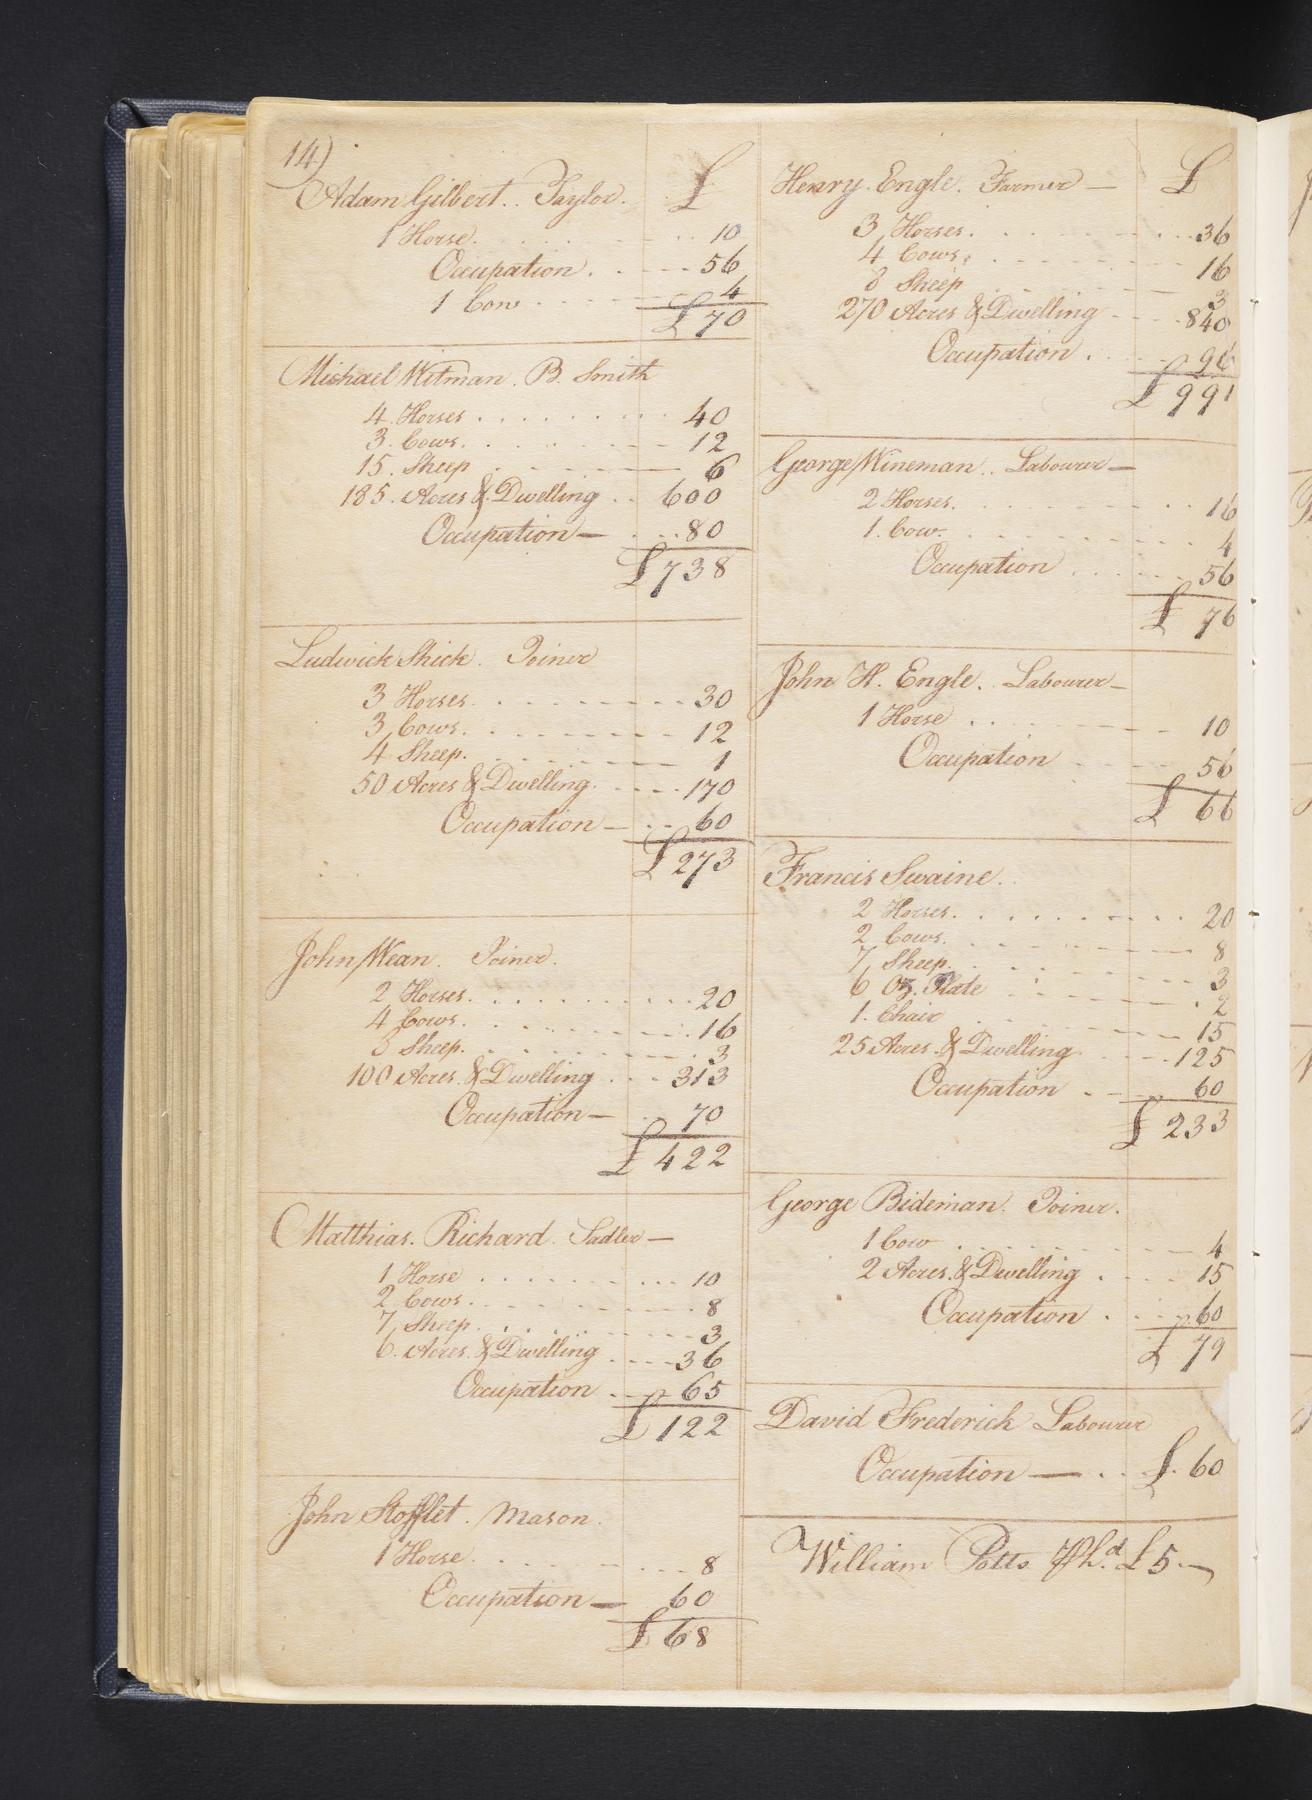 14)
Adam Gilbert. Taylor. £
1 Horse. 10
Occupation. 56
1 Cow 4
£ 70
Michael Witman. B. Smith
4. Horses 40
3. Cows. 12
15. Sheep 6
185. Acres & Dwelling 600
Occupation— 80
£ 738
Ludwick Shick. Joiner
3 Horses 30
3 Cows. 12
4 Sheep. 1
50 Acres & Dwelling. 170
Occupation— 60
£ 273
John Wean. Joiner.
2 Horses. 20
4 Cows. 16
8 Sheep. 3
100 Acres. & Dwelling 313
Occupation— 70
£ 422
Matthias. Richard. Sadler—
1 Horse 10
2 Cows. 8
7 Sheep. 3
6. Acres. & Dwelling 36
Occupation 65
£ 122
John Stofflet. Mason.
1 Horse. 8
Occupation— 60
£ 68
Henry. Engle. Farmer— £
3 Horses. 36
4 Cows. 16
8 Sheep 3
270 Acres & Dwelling 840
Occupation. 96
£ 991
George Wineman.. Labourer—
2 Horses. 16
1. Cow. 4
Occupation 56
£ 76
John H. Engle.. Labourer—
1 Horse 10
Occupation 56
£ 66
Francis Swaine.
2 Horses. 20
2 Cows. 8
7 Sheep. 3
6 Oz. Plate 2
1. Chair 15
25 Acres. & Dwelling 125
Occupation 60
£ 233
George Bideman. Joiner.
1 Cow 4
2 Acres. & Dwelling. 15
Occupation. 60
£ 79
David Frederick Labourer
Occupation— £. 60
William Potts £5.—